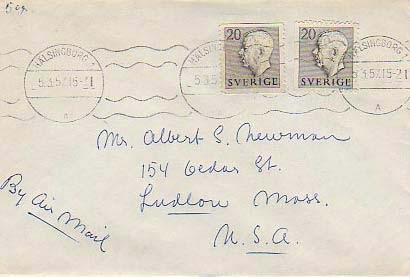 5 ex.
20 20
SVERIGE SVERIGE
HÄLSINGBORG HÄLSINGBORG
5.3.57.15-21 5.3.57.15-21
A A
Mr. Albert S. Newman
154 Cedar St.
Ludlow Mass.
U.S.A.
By Air Mail